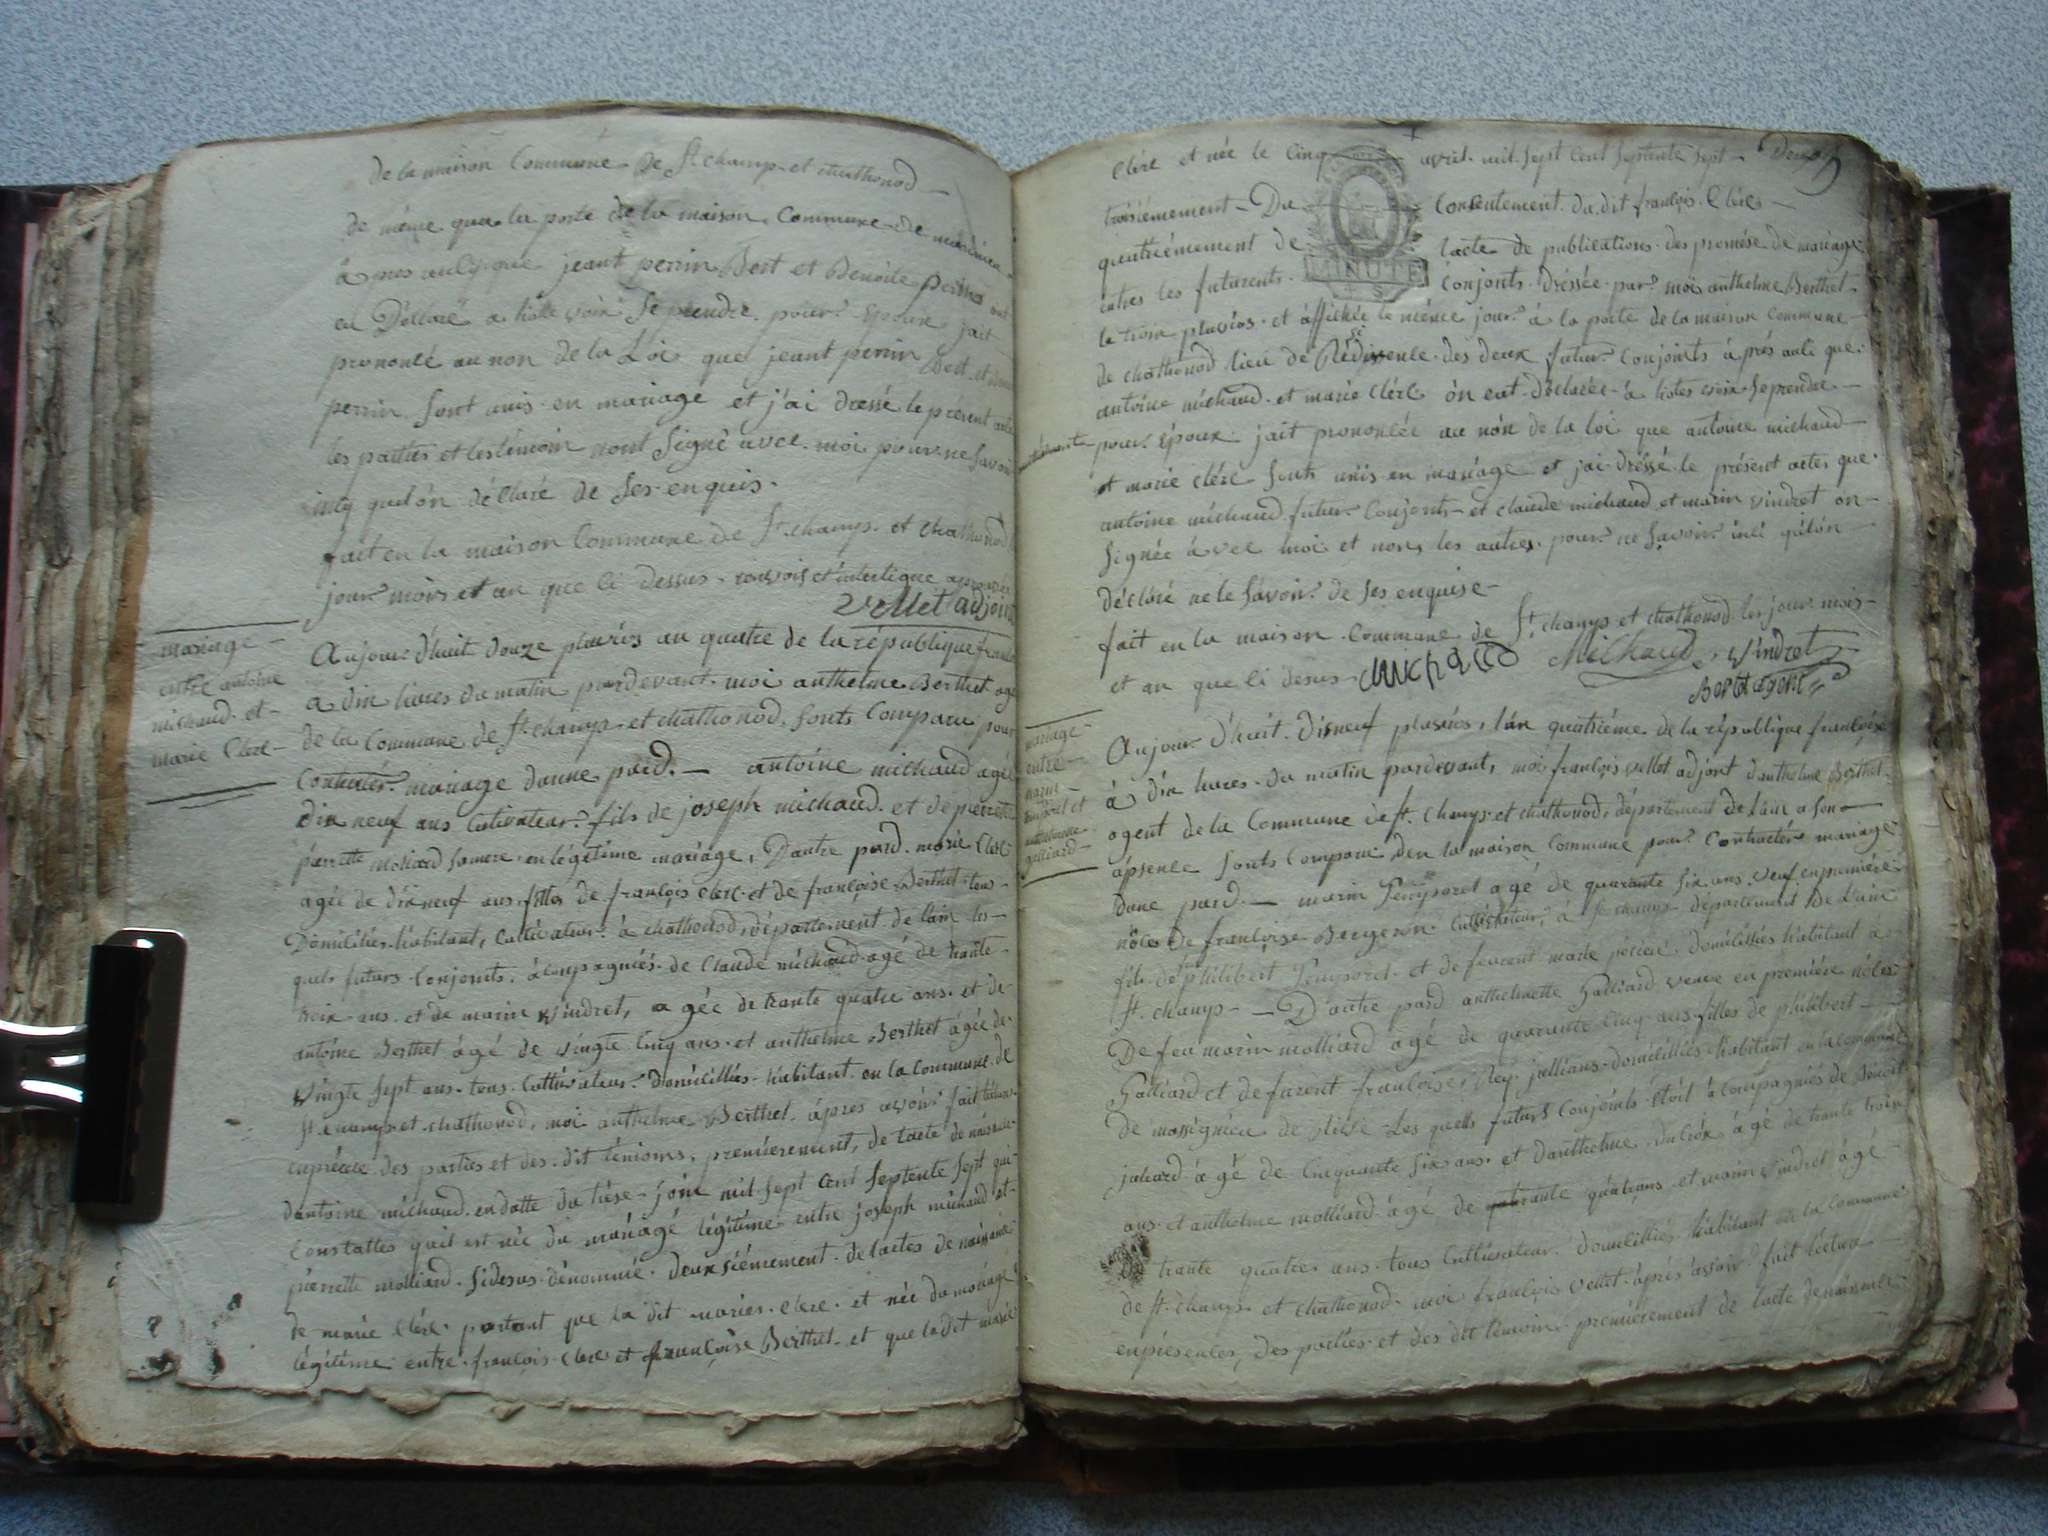 de la maison Commune de St. champ et chathonod
de même qua la porte de la maison Commune de
à que jeant perrin Bert et Benoite perrin ont
ed Déclaré a hotte voix Se prendre pour Epoux jait
prononcé au non de la Loi que jeant perrin Bert et
perrin Sont unis en mariage et j'ai dressé le present acte
les parties et les témoin nont Signé avec moi pour ne Savoir
quil ón déclaré de Ses enquis.
fait en la maison Commune de St. champs et chathonod
jour mois et an que ci dessus
vellet adjoint
mariage
entre antoine
michaud et
marie Clerc
Aujour d'huit douze pluviôs an quatre de la république
a dix heures du matin pardevant moi anthelme Berthet agt
de la Commune de St. champs et chathonod, Sonts Comparu pour
Contracter mariage dunne pard. — antoine michaud agé
dix neuf ans Cutivateur fils de joseph michaud et de pierrette
pierrette molliard Samere en légitime mariage, D'autre pard marie Clerc
agée de dixneuf ans filles de françois clerc et de françoise Berthet tous
Domiciliés habitant, Cultivateur à chathonod, département de l'ain les
quels futurs Conjonits, àCompagniés de Claude michaud agé de trante
troix ans et de marin vindret, a gée de trante quatre ans et de
antoine Berthet ágé de vingte Cinq ans et anthelme Berthet ágée de
vingte Sept ans tous Cultivateur Domicilliés habitant en la Commune de
St. champs et chathonod, moi anthelme Berthet áprés avoir fait
des parties et des dit témoins, premierement, de lacte de
dantoine michaud en datte du trése join mil Sept Cent Septente Sept qui
Constattes quil est née du máriágé légitime entre joseph michaud et
pierrette molliard Sidesus dénommé deuxsiémement de lactes de naisance
de marie Clerc portant que la dit maries Clerc et née du mariage
légitime entre françois Clerc et françoise Berthet et que ladit marie
Clerc et née le Cinq avril mil Sept Cent Septente Sept
troisiémement Du Consentement du dit françois Clérc
quatriémement de lacte de publications des promése de mariage
entres les futurents Conjonts dréssée par moi anthelme Berthet
MINUTE
le troix pluviôs et áffichée le méme jour à la porte de la maison Commune
de chathonod lieu de Résidence des deux futur Conjoints áprés que
antoine michaud et marie Clérc ón eut Déclarée à hotes voix Se prendre
pour Epoux jait prononcée au nón de la loi que antoine michaud
et marie clérc Sonts unis en mariage et jai dréssé le présent actes que
antoine michaud futur Conjonts et claude michaud et marin vindret on
Signée ávec moi et nons les autres pour ne Savoir
déclaré ne le Sávoir de Ses enquise
fait en la maison Commune de St. champs et chathonod les jour mois
et an que ci desus michaud Michaud vindret
Bertet agent
mariage
entre
marin
et
anthelmette
galliard
Aujour d'huit disneuf plusiôs, lán quatriéme de la république françoise
à dix heures du matin pardevant, moi françois vellet adjont danthelme Berthet
agent de la Commune de St. Champs et chathonod, département de lain a son
ápsence Sonts Comparu den la maison Commune pour Contractér mariage
dune pard — marin agé de quarante Six ans veuf enpremiére
nôces de françoise Bergeron Cultivateur à St. champs département De lain
fils de philibert et de feurent marie domicilliés habitant à
St. champs — D'autre pard anthelmette Galliard veuve en premiére nôces
De feu marin molliard agé de quarante Cinq ans filles de philibert
Galliard et defurent françoise domicilliés habitant en la commune
de massignieu de Les quells futurs Conjoints étoit à Compagniés de Benoit
ágé de Cinquante Six ans et danthelme ágé de trante troix
ans et anthelme molliard ágé de trante quatrans et marin vindret ágé
trante quatre ans tous Cultivateur domicilliés habitant en la Commune
de St. champs et chathonod moi françois vellet áprés avoir fait lectura
enpresentes, des parties et des dit témoins premiérement de lacte